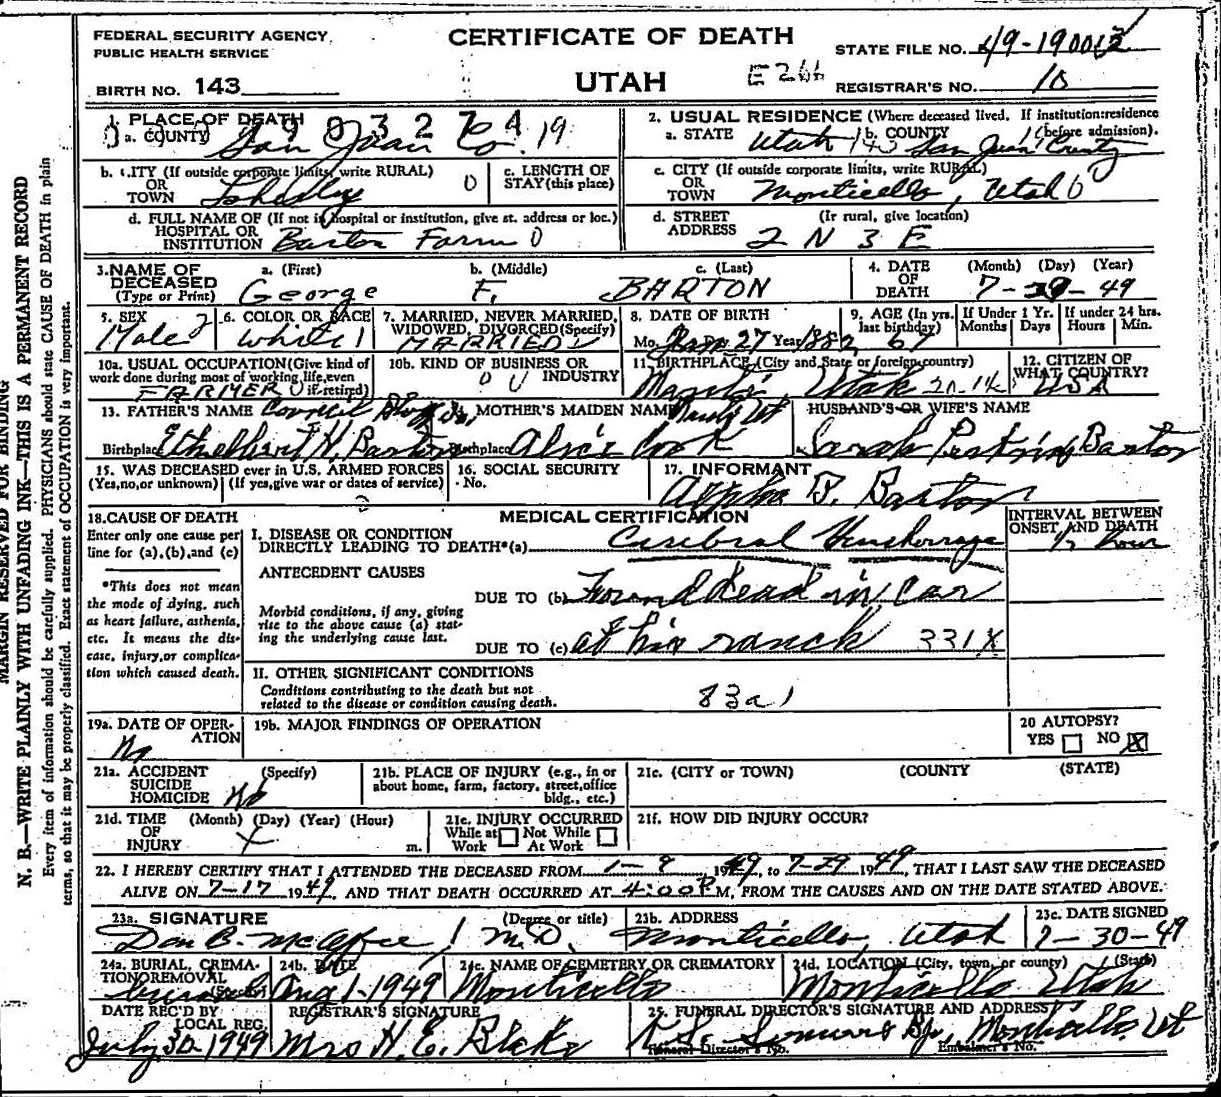 FEDERAL SECURITY AGENCY
PUBLIC HEALTH SERVICE
CERTIFICATE OF DEATH
STATE FILE NO. 49-190013
BIRTH NO. 143
UTAH
E266
REGISTRAR'S NO. 10
1. PLACE OF DEATH
a. COUNTY San Juan Co. 19
2. USUAL RESIDENCE (Where deceased lived. If institution:residence before admission).
a. STATE Utah 143 b. COUNTY San Juan County
b. CITY (If outside corporate limits, write RURAL) OR TOWN 0
c. LENGTH OF STAY (this place)
c. CITY (If outside corporate limits, write RURAL) OR TOWN Monticello, Utah 0
d. FULL NAME OF (If not in hospital or institution, give st. address or loc.) HOSPITAL OR INSTITUTION Barton Farm 0
d. STREET ADDRESS (If rural, give location) 2 N 3 E
3. NAME OF DECEASED (Type or Print)
a. (First) George
b. (Middle) F.
c. (Last) BARTON
4. DATE OF DEATH (Month) (Day) (Year) 7-29-49
5. SEX Male 2
6. COLOR OR RACE White 1
7. MARRIED, NEVER MARRIED, WIDOWED, DIVORCED (Specify) MARRIED
8. DATE OF BIRTH Mo. Jan Da. 27 Year 1882
9. AGE (In yrs. last birthday) 67
If Under 1 Yr. Months Days
If under 24 hrs. Hours Min.
10a. USUAL OCCUPATION (Give kind of work done during most of working life, even if retired) FARMER
10b. KIND OF BUSINESS OR INDUSTRY
11. BIRTHPLACE (City and State or foreign country) Utah
12. CITIZEN OF WHAT COUNTRY? USA
13. FATHER'S NAME Ethelbert H. Barton
Birthplace
14. MOTHER'S MAIDEN NAME Alice Cook
Birthplace
HUSBAND'S OR WIFE'S NAME
Sarah Perkins Barton
15. WAS DECEASED ever in U.S. ARMED FORCES
(Yes, no, or unknown) (If yes, give war or dates of service)
16. SOCIAL SECURITY No.
17. INFORMANT
B. Barton
18. CAUSE OF DEATH
Enter only one cause per line for (a), (b), and (c)
*This does not mean the mode of dying, such as heart failure, asthenia, etc. It means the disease, injury, or complication which caused death.
MEDICAL CERTIFICATION
INTERVAL BETWEEN ONSET AND DEATH
I. DISEASE OR CONDITION DIRECTLY LEADING TO DEATH*(a) Cerebral Hemhorrage 1/2 hour
ANTECEDENT CAUSES
Morbid conditions, if any, giving rise to the above cause (a) stating the underlying cause last.
DUE TO (b) Found dead in car
DUE TO (c) at his ranch 331X
II. OTHER SIGNIFICANT CONDITIONS
Conditions contributing to the death but not related to the disease or condition causing death.
83a1
19a. DATE OF OPERATION No
19b. MAJOR FINDINGS OF OPERATION
20 AUTOPSY?
YES NO X
21a. ACCIDENT SUICIDE HOMICIDE (Specify) No
21b. PLACE OF INJURY (e.g., in or about home, farm, factory, street, office bldg., etc.)
21c. (CITY or TOWN) (COUNTY) (STATE)
21d. TIME OF INJURY (Month) (Day) (Year) (Hour) m.
21e. INJURY OCCURRED
While at Work Not While At Work
21f. HOW DID INJURY OCCUR?
22. I HEREBY CERTIFY THAT I ATTENDED THE DECEASED FROM 1-9 1949, to 7-29 1949, THAT I LAST SAW THE DECEASED
ALIVE ON 7-17 1949, AND THAT DEATH OCCURRED AT 4:00P M, FROM THE CAUSES AND ON THE DATE STATED ABOVE.
23a. SIGNATURE (Degree or title)
Don B. McAfee, M.D.
23b. ADDRESS
Monticello, Utah
23c. DATE SIGNED
7-30-49
24a. BURIAL, CREMATION, REMOVAL (Specify)
24b. DATE
Aug 1-1949
24c. NAME OF CEMETERY OR CREMATORY
Monticello
24d. LOCATION (City, town, or county) (State)
Monticello Utah
DATE REC'D BY LOCAL REG.
July 30-1949
REGISTRAR'S SIGNATURE
Mrs H. E. Blake
25. FUNERAL DIRECTOR'S SIGNATURE AND ADDRESS
Monticello, Ut
Funeral Director's No. Embalmer's No.
MARGIN RESERVED FOR BINDING
N. B.—WRITE PLAINLY WITH UNFADING INK—THIS IS A PERMANENT RECORD
Every item of information should be carefully supplied. PHYSICIANS should state CAUSE OF DEATH in plain
terms, so that it may be properly classified. Exact statement of OCCUPATION is very important.